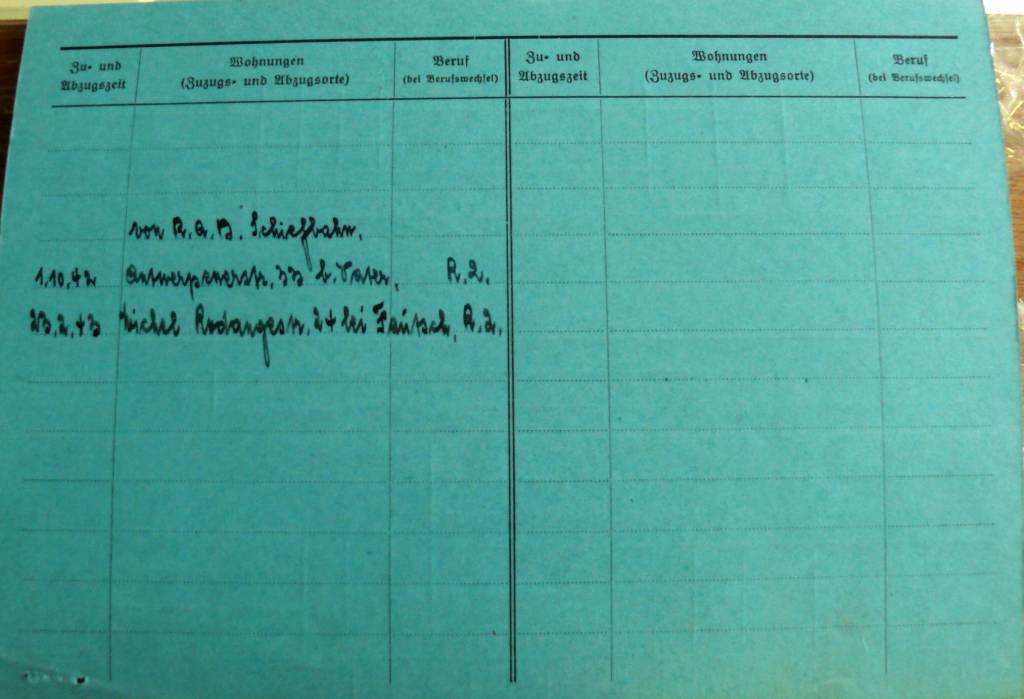 Zu- und Abzugszeit
Wohnungen
(Zuzugs- und Abzugsorte)
Beruf
(bei Berufswechsel)
Zu- und Abzugszeit
Wohnungen
(Zuzugs- und Abzugsorte)
Beruf
(bei Berufswechsel)
von R.A.D. Schiefbahn.
1.10.42 Antwerpenerstr. 33 b. Vater, R.2.
23.2.43 Michel Rodangestr. 24 bei Fautsch, R.2.